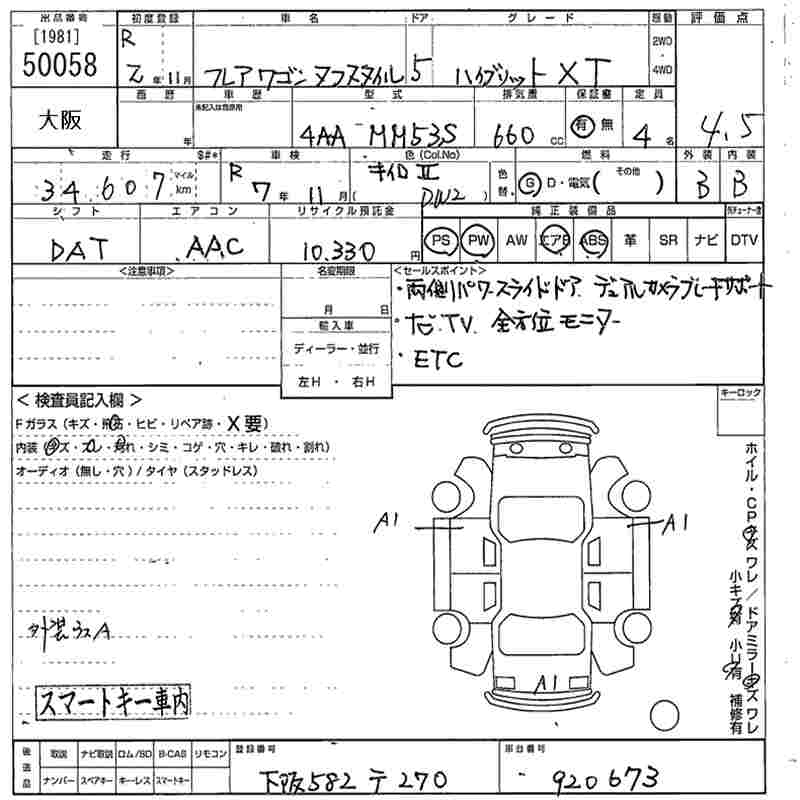 出品番号 初度登録 車名 ドア グレード 駆動 評価点
[1981] R 2WD
50058 元年11月 フレアワゴン タフスタイル 5 ハイブリット XT 4WD
西暦 車歴 型式 排気量 保証書 定員
大阪 年 未記入は自家用 4AA MM53S 660cc 有 無 4名 4.5
走行 $#* 車検 色(Col.No) 燃料 外装 内装
34,607 マイル km R 7年 11月 キイロⅡ (DW2) 色替 G D・電気( その他 ) B B
シフト エアコン リサイクル預託金 純正装備品
DAT AAC 10,330円 PS PW AW エアB ABS 革 SR ナビ DTV
<注意事項> 名変期限 <セールスポイント>
月 日 ・両側パワースライドドア デュアルカメラブレーキサポート
輸入車 ・ナビ.TV 全方位モニター
ディーラー・並行 ・ETC
左H・右H
<検査員記入欄> キーロック
Fガラス(キズ・飛石・ヒビ・リペア跡・X要)
内装(キズ・スレ・汚れ・シミ・コゲ・穴・キレ・破れ・割れ)
オーディオ(無し・穴)/タイヤ(スタッドレス)
A1 A1
ホイル・CPキズ ワレ/ドアミラーキズ ワレ
小キズ有 小U有 補修有
外装うスA
A1
スマートキー車内
後送品 取説 ナビ取説 ロム/SD B-CAS リモコン 登録番号 車台番号
ナンバー スペアキー キーレス スマートキー 大阪582 テ 270 920673